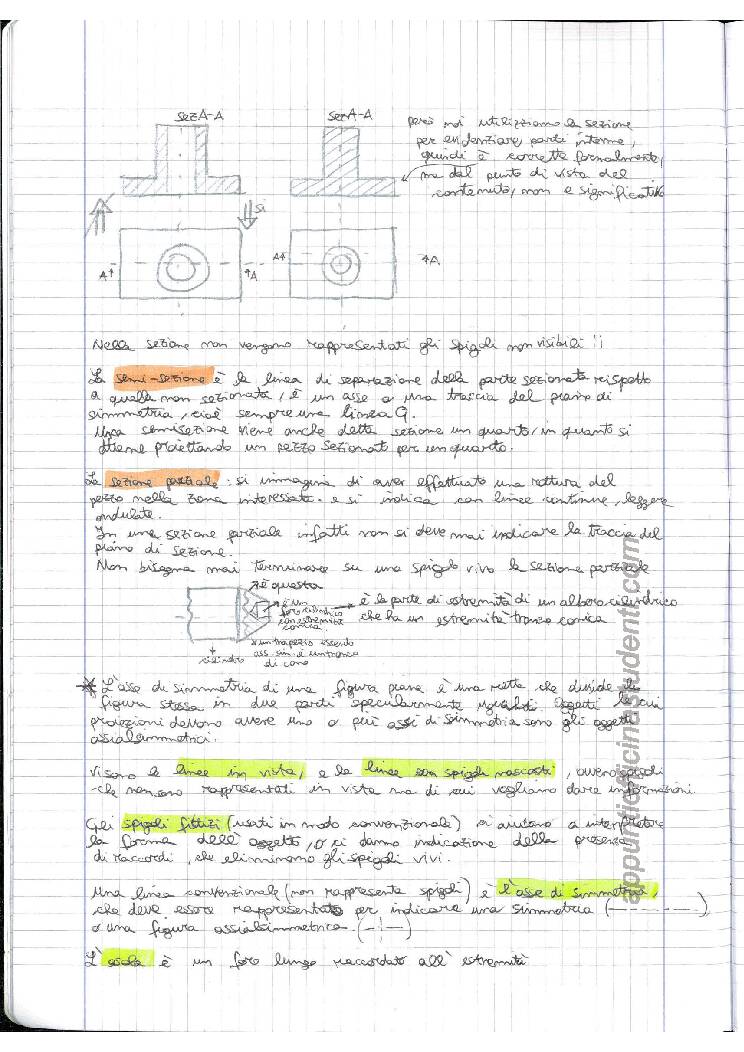 sez A-A
sez A-A
però noi utilizziamo la sezione
per evidenziare parti interne,
quindi è corretta formalmente,
ma dal punto di vista del
contenuto, non è significativa
si
A
A
A
A
Nella sezione non vengono rappresentati gli spigoli non visibili !!
La semi-sezione è la linea di separazione della parte sezionata rispetto
a quella non sezionata, è un asse o una traccia del piano di
simmetria, cioè sempre una linea G.
Una semisezione viene anche detta sezione un quarto, in quanto si
ottiene proiettando un pezzo sezionato per un quarto.
La sezione parziale: si immagina di aver effettuato una rottura del
pezzo nella zona interessata e si indica con linee continue, leggere
ondulate.
In una sezione parziale infatti non si deve mai indicare la traccia del
piano di sezione.
Non bisogna mai terminare su uno spigolo vivo la sezione parziale
è questa
è un
foro cilindrico
con estremità
conica
è la parte di estremità di un albero cilindrico
che ha un estremità tronco conica
un trapezio essendo
ass. sim. è un tronco
di cono
cilindro
* L'asse di simmetria di una figura piana è una retta che divide la
figura stessa in due parti specularmente uguali. Oggetti le cui
proiezioni devono avere uno o più assi di simmetria sono gli oggetti
assialsimmetrici.
Vi sono le linee in vista, e le linee con spigoli nascosti, ovvero spigoli
che non sono rappresentati in vista ma di cui vogliamo dare informazioni.
Gli spigoli fittizi (usati in modo convenzionale) ci aiutano a interpretare
la forma dell'oggetto, o ci danno indicazione della presenza
di raccordi, che eliminano gli spigoli vivi.
Una linea convenzionale (non rappresenta spigoli) è l'asse di simmetria,
che deve essere rappresentato per indicare una simmetria
o una figura assialsimmetrica.
L'asola è un foro lungo raccordato all'estremità
appuntiofficinastudenti.com